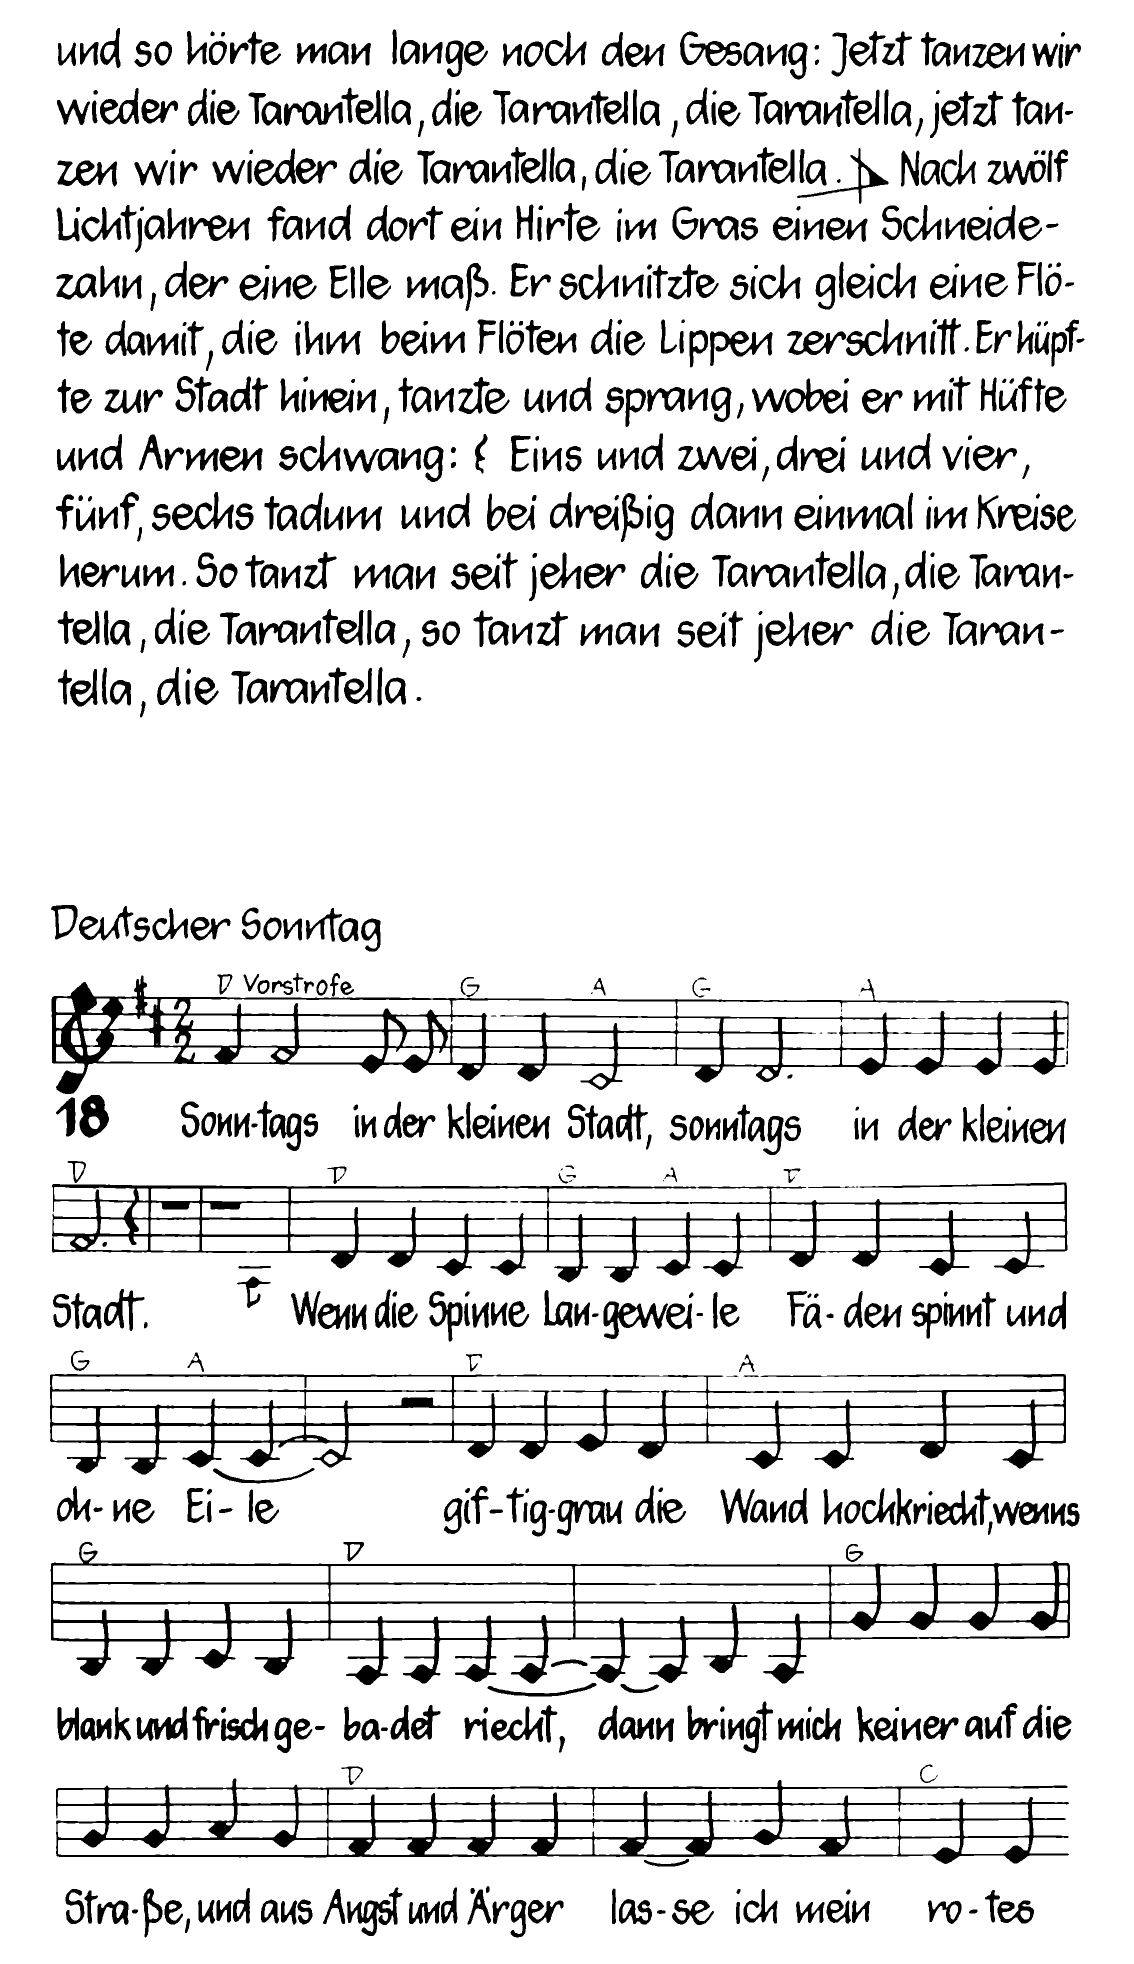 und so hörte man lange noch den Gesang: Jetzt tanzen wir
wieder die Tarantella, die Tarantella, die Tarantella, jetzt tan-
zen wir wieder die Tarantella, die Tarantella. Nach zwölf
Lichtjahren fand dort ein Hirte im Gras einen Schneide-
zahn, der eine Elle maß. Er schnitzte sich gleich eine Flö-
te damit, die ihm beim Flöten die Lippen zerschnitt. Er hüpf-
te zur Stadt hinein, tanzte und sprang, wobei er mit Hüfte
und Armen schwang: { Eins und zwei, drei und vier,
fünf, sechs tadum und bei dreißig dann einmal im Kreise
herum. So tanzt man seit jeher die Tarantella, die Taran-
tella, die Tarantella, so tanzt man seit jeher die Taran-
tella, die Tarantella.
Deutscher Sonntag
D Vorstrofe G A G A
2 2
18 Sonn-tags in der kleinen Stadt, sonntags in der kleinen
D D G A D
Stadt. Wenn die Spinne Lan-gewei-le Fä-den spinnt und
G A D A
oh-ne Ei-le gif-tig-grau die Wand hochkriecht, wenns
G D G
blank und frisch ge-ba-det riecht, dann bringt mich keiner auf die
D C
Stra-ße, und aus Angst und Ärger las-se ich mein ro-tes